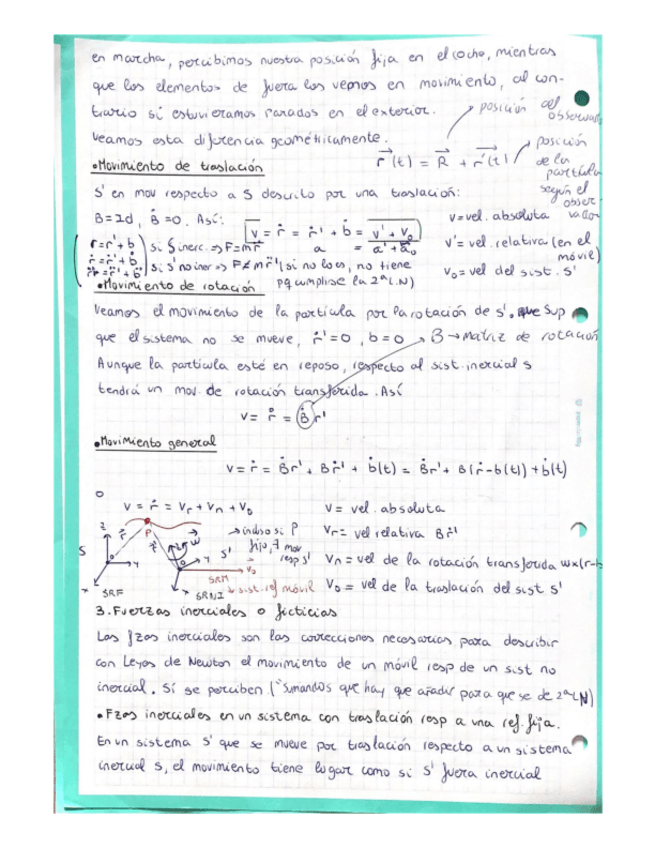 en marcha, percibimos nuestra posición fija en el coche, mientras
que los elementos de fuera los vemos en movimiento, al con-
trario si estuvieramos parados en el exterior.
posición del observador
Veamos esta diferencia geométricamente.
r(t) = R + r'(t)
posición de la partícula según el observador
•Movimiento de traslación
S' en mov respecto a S descrito por una traslación:
B=Id, Ḃ=0. Así:
v = ṙ = ṙ' + ḃ = v' + v₀
a = a' + a₀
v=vel. absoluta
v'= vel. relativa (en el móvil)
v₀= vel del sist. S'
r=r'+b
ṙ=ṙ'+ḃ
r̈=r̈'+b̈
si S inerc.⇒ F=mr̈
si s' no iner ⇒ F≠mr̈' (si no lo es, no tiene
pq cumplirse la 2ªLN)
•Movimiento de rotación
Veamos el movimiento de la partícula por la rotación de s'. que Sup
que el sistema no se mueve, ṙ'=0, b=0
B→matriz de rotación
Aunque la partícula esté en reposo, respecto al sist.inercial s
tendrá un mov. de rotación transferida. Así
v= ṙ = Ḃr'
•Movimiento general
v=ṙ= Ḃr' + Bṙ' + ḃ(t) = Ḃr' + B(ṙ-b(t)) + ḃ(t)
o
v = ṙ = Vr + Vn + V₀
v= vel. absoluta
Vr= vel relativa Bṙ'
Vn= vel de la rotación transferida wx(r-b
V₀= vel de la traslación del sist S'
P
→incluso si P
fijo, ∃ mov
resp s'
S
z
r
r'
0
y
x
SRF
w
S'
y
V₀
x
SRM
SRNI
→sist. ref móvil
3. Fuerzas inerciales o ficticias
Las fzas inerciales son las correcciones necesarias para describir
con Leyes de Newton el movimiento de un móvil resp de un sist no
inercial. Sí se perciben ("sumandos que hay que añadir para que se de 2ªLN)
•Fzas inerciales en un sistema con traslación resp a una ref. fija.
En un sistema S' que se mueve por traslación respecto a un sistema
inercial S, el movimiento tiene lugar como si S' fuera inercial